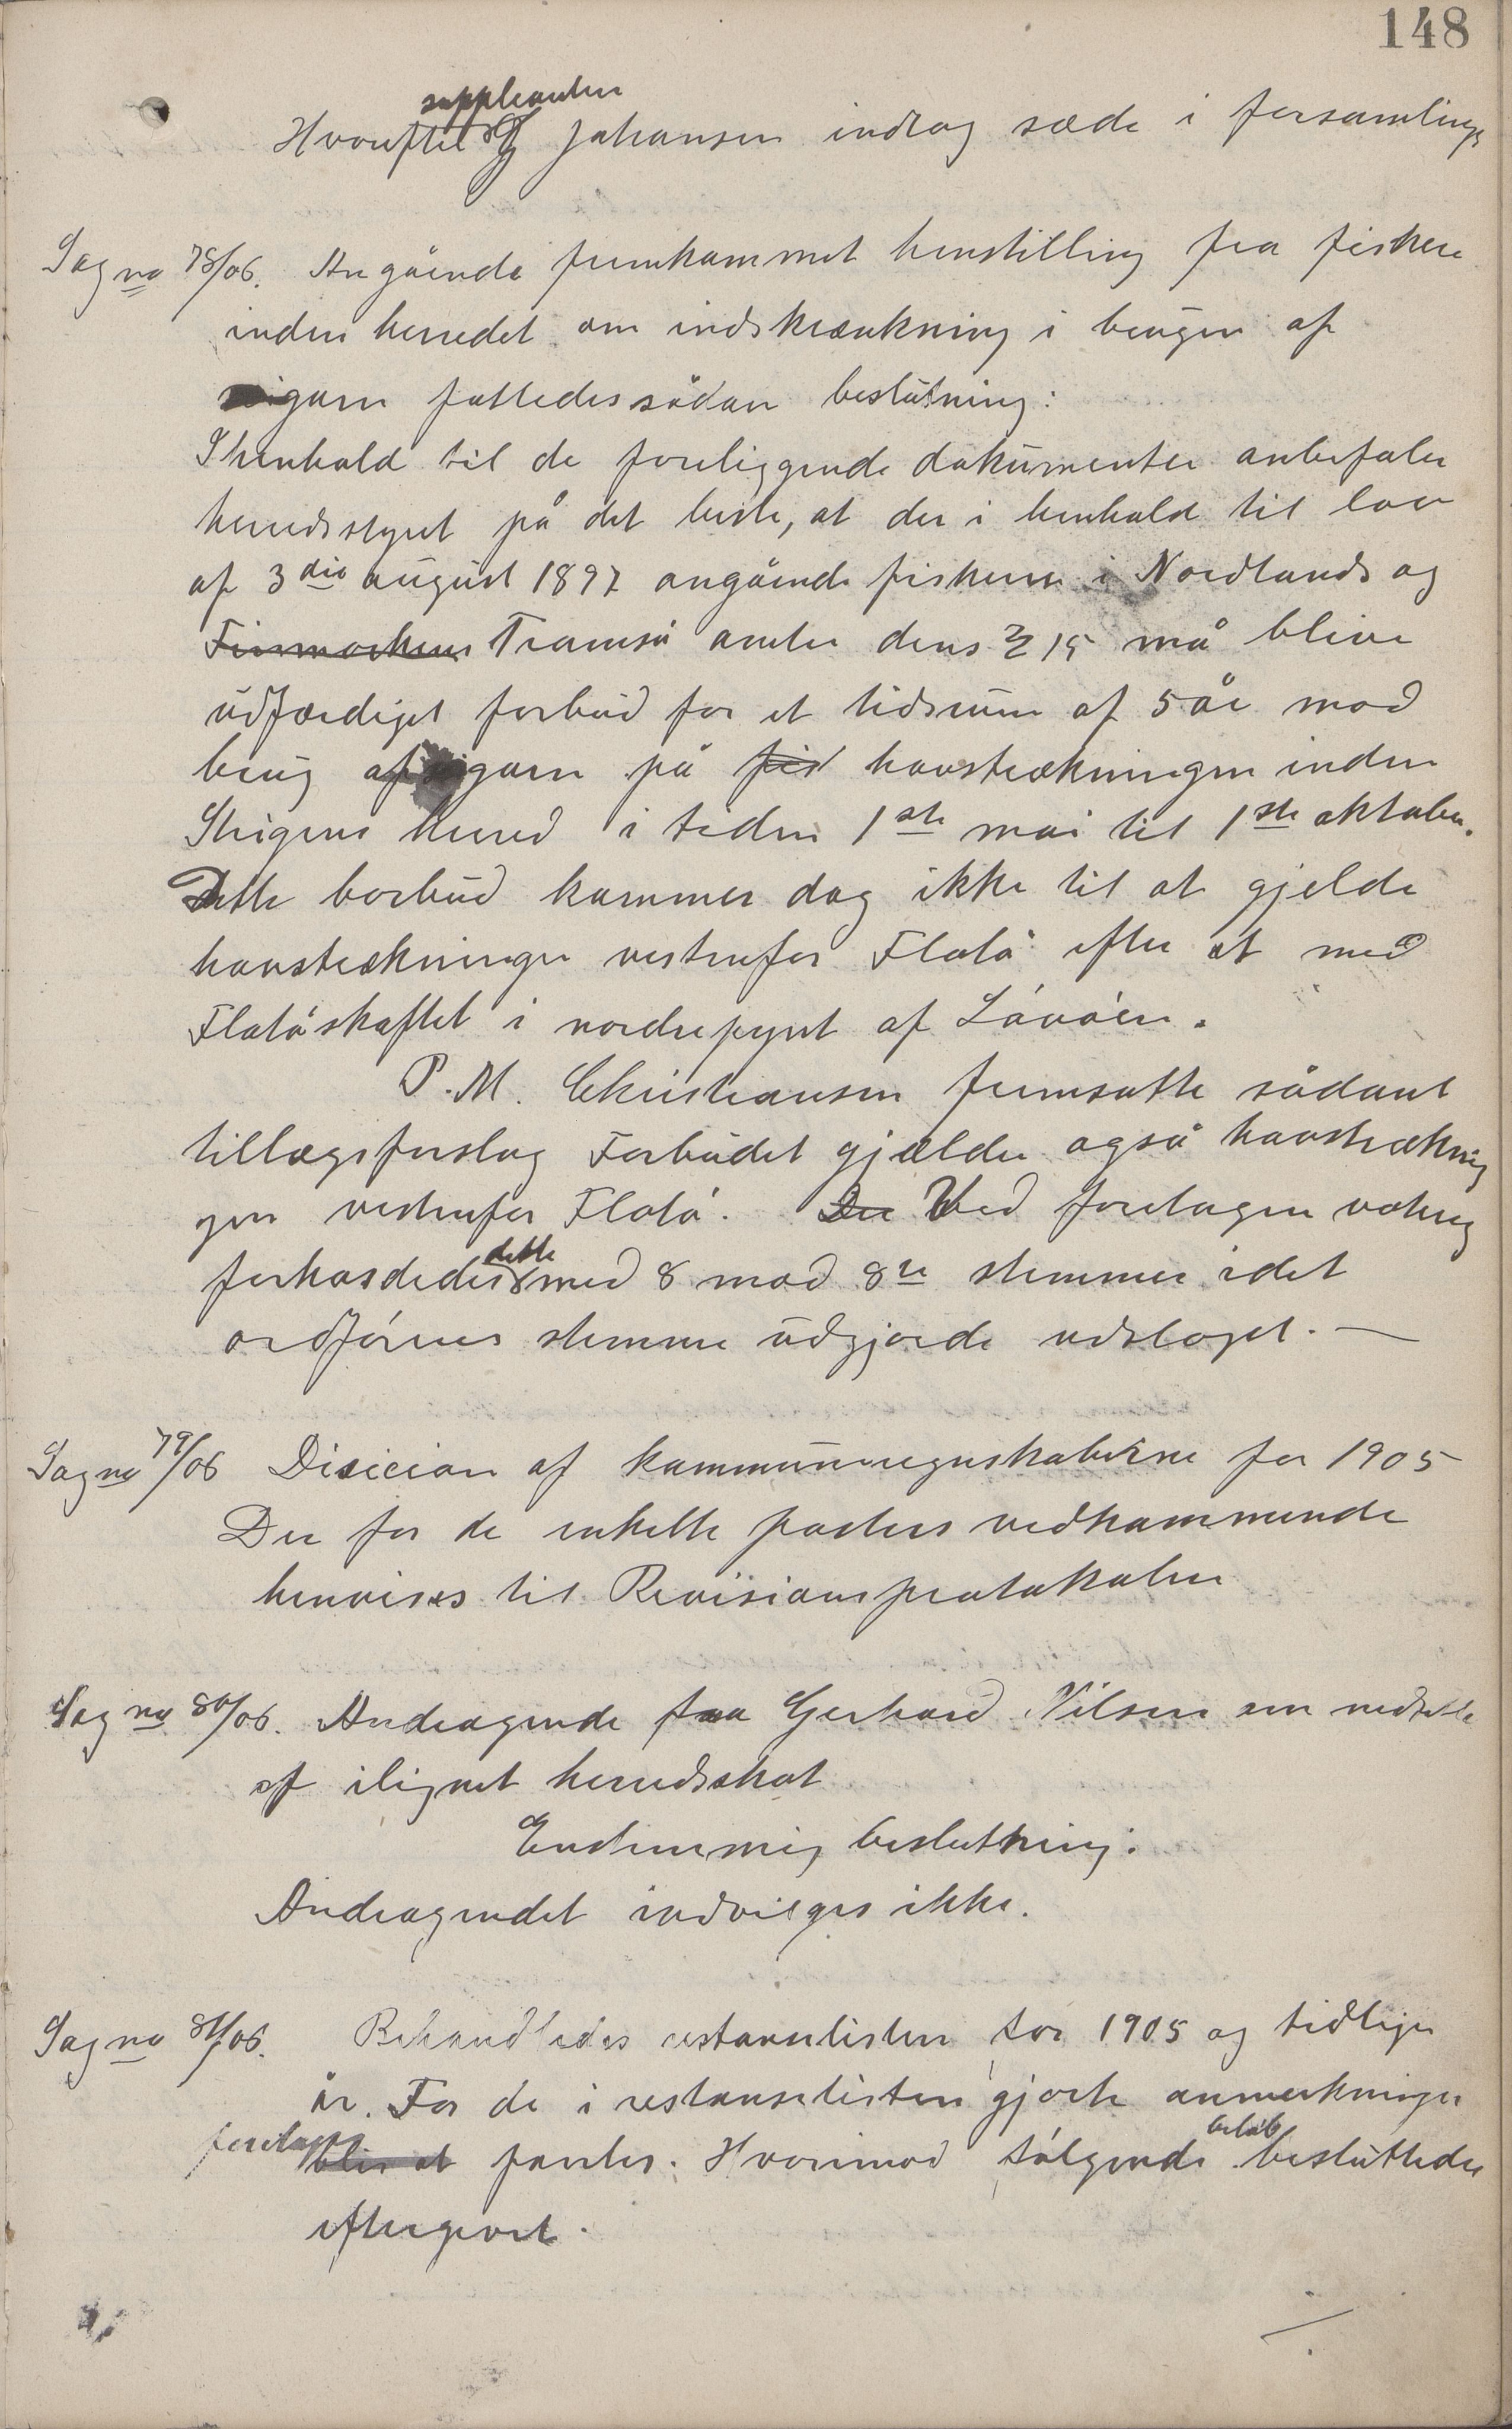 148
suppleanten
Hvorefter Johansen indtog sæde i forsamlinge
Sag no 78/06. Angående fremkommet henstilling fra fiskere
inden herredet om indskrænkning i brugen af
garn fattedes sådan beslutning:
I henhold til de foreliggende dokumenter anbefaler
herredsstyret på det beste, at der i henhold til lov
af 3die august 1897 angående fiskerne i Nordlands og
Finmarkens Tromsö amter dens § 15 må blive
udfærdiget forbud for et tidsrum af 5 år mod
brug af garn på fis havstrækningen inden
Steigens herred i tiden 1ste mai til 1ste oktober.
Dette borbud kommer dog ikke til at gjelde
havstrækningen vestenfor Flatö efter et med
Flatöskaftet i nordrepynt af Lövöen.
P. M. Christiansen fremsatte sådant
tillægsforslag Forbudet gjælder også havstrækning
gen vestenfor Flatö. Der Ved foretagen voterig
dette
forkastedes med 8 mod 8te stemmer idet
ordförers stemme udgjorde udslaget. —
Sag no 79/06 Disicion af kommuneregnskaberne for 1905
Der for de enkelte posters vedkommende
henvises til Revisionsprotokolen
Sag no 80/06. Andragende fra Gerhard Nilsen om nedsette
af ilignet herredsskat
Enstemmig beslutning:
Andragendet indvilges ikke.
Sag no 81/06. Behandledes restanselisten for 1905 og tidliger
år. For de i restanselisten gjorte anmerkninger
foretages
blir at  Hvorimod fölgende besluttedes
belöb
eftergivet.